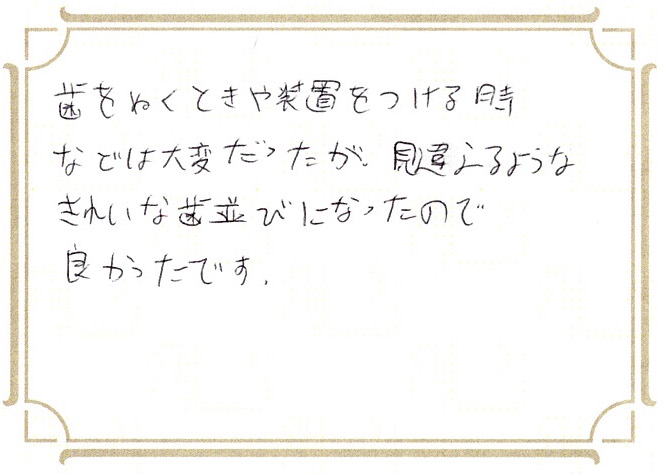 歯をぬくときや装置をつける時
などは大変だったが、見違えるような
きれいな歯並びになったので
良かったです。